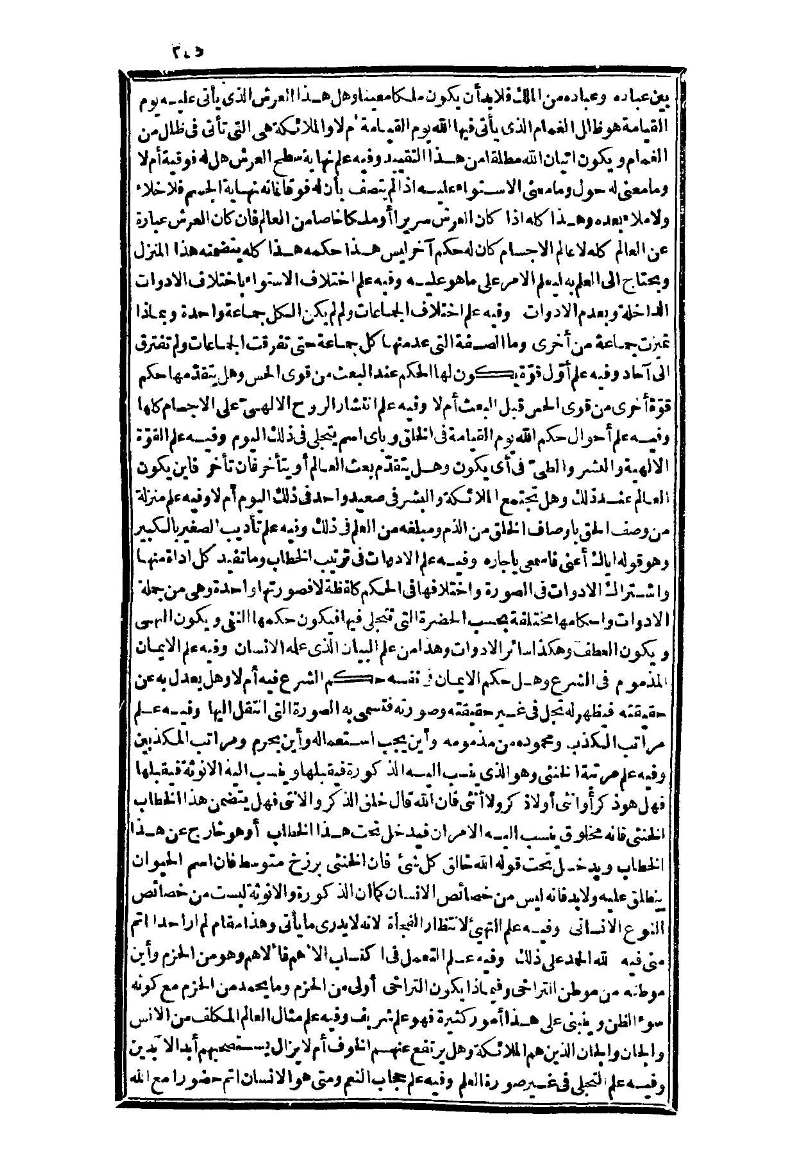 ٣٠٥
بين عباده وعباده من الملك فلا بد أن يكون ملكا معينا وهل هذا العرش الذي يأتي عليه يوم
القيامة هو ظلل الغمام الذي يأتي فيها الله يوم القيامة أم لا والملائكة هي التي تأتي في ظلل من
الغمام ويكون اتيان الله مطلقا من هذا التقييد وفيه علم نهاية سطح العرش هل له فوقية أم لا
وما معنى له حول وما معنى الاستواء عليه اذا لم يتصف بأن له فوقا فانه نهاية الجسم فلا خلاء
ولا ملاء بعده وهذا كله اذا كان العرش سريرا أو ملكا خاصا من العالم فان كان العرش عبارة
عن العالم كله لا عالم الاجسام كان له حكم آخر ليس هذا حكمه هذا كله يتضمنه هذا المنزل
ويحتاج الى العلم به ليعلم الامر على ما هو عليه وفيه علم اختلاف الاستواء باختلاف الادوات
الداخلة وبعدم الادوات وفيه علم اختلاف الجماعات ولم لم يكن الكل جماعة واحدة وبماذا
تميزت جماعة من أخرى وما الصفة التي عدمتها كل جماعة حتى تفرقت الجماعات ولم تفترق
الى آحاد وفيه علم أول قوة يكون لها الحكم عند البعث من قوى الحس وهل يتقدمها حكم
قوة أخرى من قوى الحس قبل البعث أم لا وفيه علم انتشار الروح الالهي على الاجسام كلها
وفيه علم أحوال حكم الله يوم القيامة في الخلق وبأي اسم يتجلى في ذلك اليوم وفيه علم القوة
الالهية والعشر والطي في أي يكون وهل يتقدم بعث العالم أو يتأخر فان تأخر فأين يكون
العالم عند ذلك وهل تجتمع الملائكة والبشر في صعيد واحد في ذلك اليوم أم لا وفيه علم منزلة
من وصف الحق بأوصاف الخلق من الذم ومبلغه من العلم في ذلك وفيه علم تأديب الصغير بالكبير
وهو قوله اياك أعني فاسمعي يا جاره وفيه علم الادوات في ترتيب الخطاب وما تفيد كل اداة منها
واشتراك الادوات في الصورة واختلافها في الحكم كلفظة لا فصورتها واحدة وهي من جملة
الادوات واحكامها مختلفة بحسب الحضرة التي تتجلى فيها فيكون حكمها النفي ويكون النهي
ويكون العطف وهكذا سائر الادوات وهذا من علم البيان الذي علمه الانسان وفيه علم الايمان
المذموم في الشرع وهل حكم الايمان في نفسه حكم الشرع فيه أم لا وهل يعدل به عن
حقيقته فيظهر له تجل في غير حقيقته وصورته فتسمى به الصورة التي انتقل اليها وفيه علم
مراتب الكذب ومحموده من مذمومه وأين يجب استعماله وأين يحرم ومراتب المكذبين
وفيه علم مرتبة الخنثى وهو الذي ينسب اليه الذكورة فيقبلها وينسب اليه الانوثة فيقبلها
فهل هو ذكر أو انثى أو لا ذكر ولا أنثى فان الله قال خلق الذكر والانثى فهل يتضمن هذا الخطاب
الخنثى فانه مخلوق ينسب اليه الامران فيدخل تحت هذا الخطاب أو هو خارج عن هذا
الخطاب ويدخل تحت قوله الله خالق كل شئ فان الخنثى برزخ متوسط فان اسم الحيوان
ينطلق عليه ولا بد فانه ليس من خصائص الانسان كما أن الذكورة والانوثة ليست من خصائص
النوع الانساني وفيه علم التهيئ لانتظار الفجأة لانه لا يدري ما يأتي وهذا مقام لم أر احدا اتم
مني فيه لله الحمد على ذلك وفيه علم التعمل في اكتساب الاهم فالاهم وهو من الحزم وأين
موطنه من موطن التراخي وفيماذا يكون التراخي أولى من الحزم وما يحمد من الحزم مع كونه
سوء الظن وينبني على هذا أمور كثيرة فهو علم شريف وفيه علم مثال العالم المكلف من الانس
والجان والجان الذين هم الملائكة وهل يرتفع عنهم الخوف أم لا يزال يستصحبهم أبد الآبدين
وفيه علم التجلي في غير صورة العلم وفيه علم حجاب النعم ومتى هو الانسان اتم حضورا مع الله